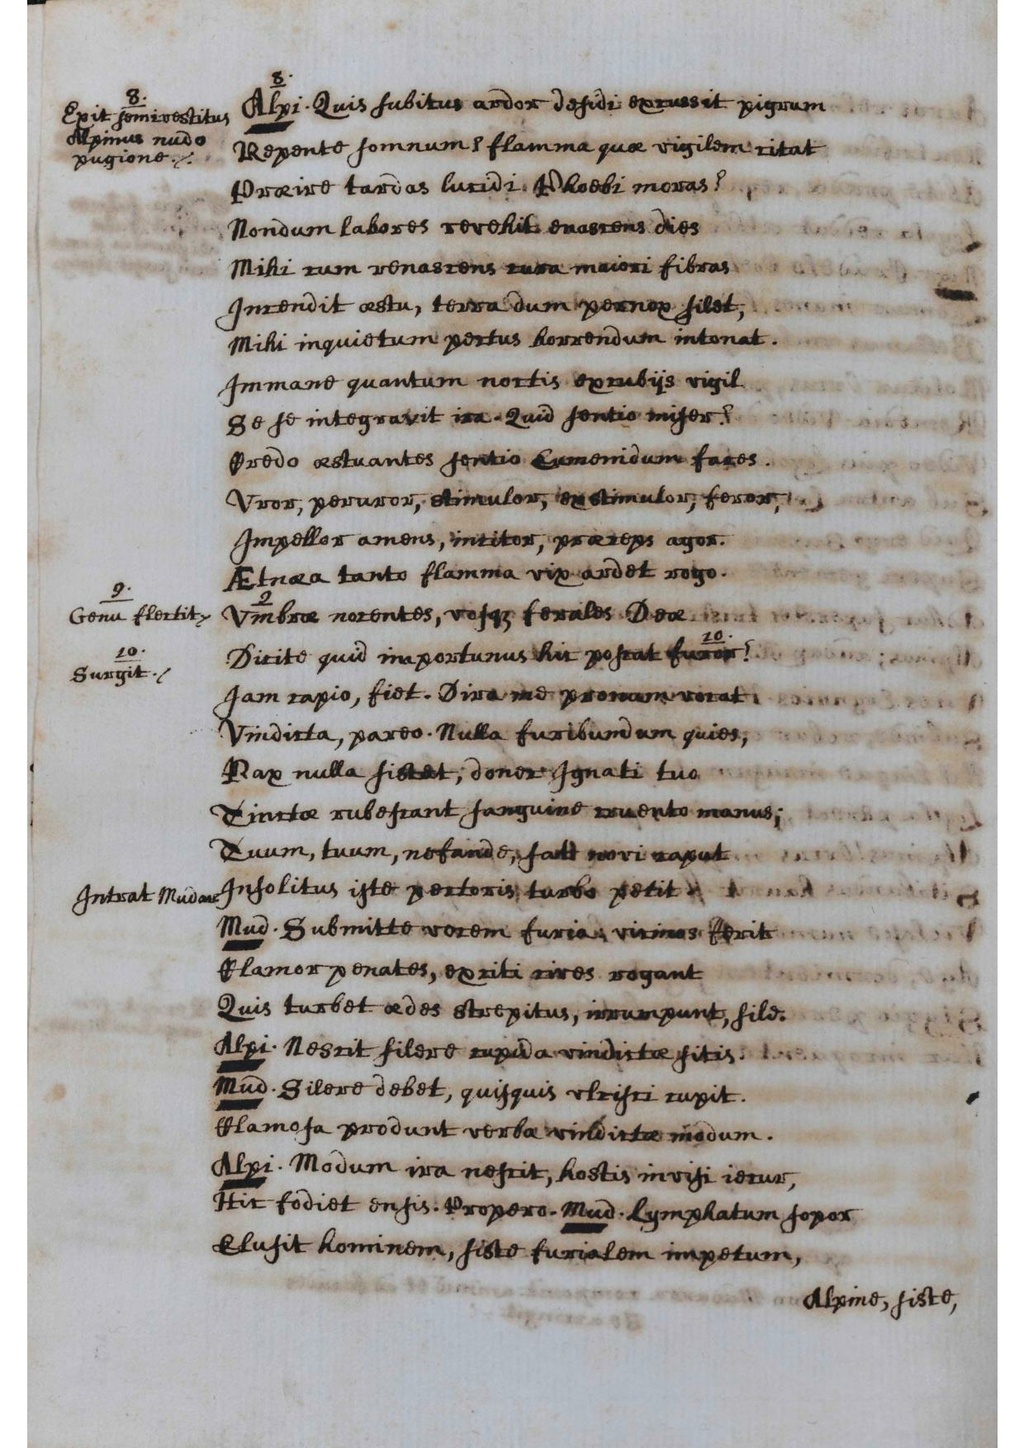 8.
Exit semivestitus
Alpinus nudo
pugione ./.
8.
Alpi. Quis subitus ardor desidi excussit pigrum
Repente somnum? flamma quæ vigilem citat
Præire tardas lucidi Phoebi moras?
Nondum labores revehit enascens dies
Mihi cum renascens cura maiori fibras
Incendit æstu, terra dum pernox silet,
Mihi inquietum pectus horrendum intonat.
Immane quantum noctis excubijs vigil
Se se integravit ira. Quid sentio miser?
Credo æstuantes sentio Eumenidum faces.
Vror, peruror, stimulor, exstimulor, feror,
Impellor amens, incitor, præceps agor.
Ætnæa tanto flamma vix ardet rogo.
9.
Genu flectit
9
Vmbræ nocentes, vosq; ferales Deæ
10.
Surgit ./
10.
Dicite quid importunus hic poscat furor?
Jam capio, fiet. Dira me pronum vocat
Vindicta, pareo. Nulla furibundum quies,
Pax nulla sistet, donec Ignati tuo
Tinctæ rubescant sanguine cruento manus;
Tuum, tuum, nefande, caput
Intrat Mudane
Insolitus iste pectoris turbo petit
Mud. Submitte vocem furia, vicinos ferit
Clamor penates, exciti cives rogant
Quis turbet ædes strepitus, irrumpunt, sile.
Alpi. Nescit silere cupida vindictæ sitis.
Mud. Silere debet, quisquis vlcisci cupit.
Clamosa produnt verba vindictæ modum.
Alpi. Modum ira nescit, hostis invisi iecur,
Hic fodiet ensis. Propero. Mud. Lymphatum sopor
Elusit hominem, siste furialem impetum,
Alpine, siste,